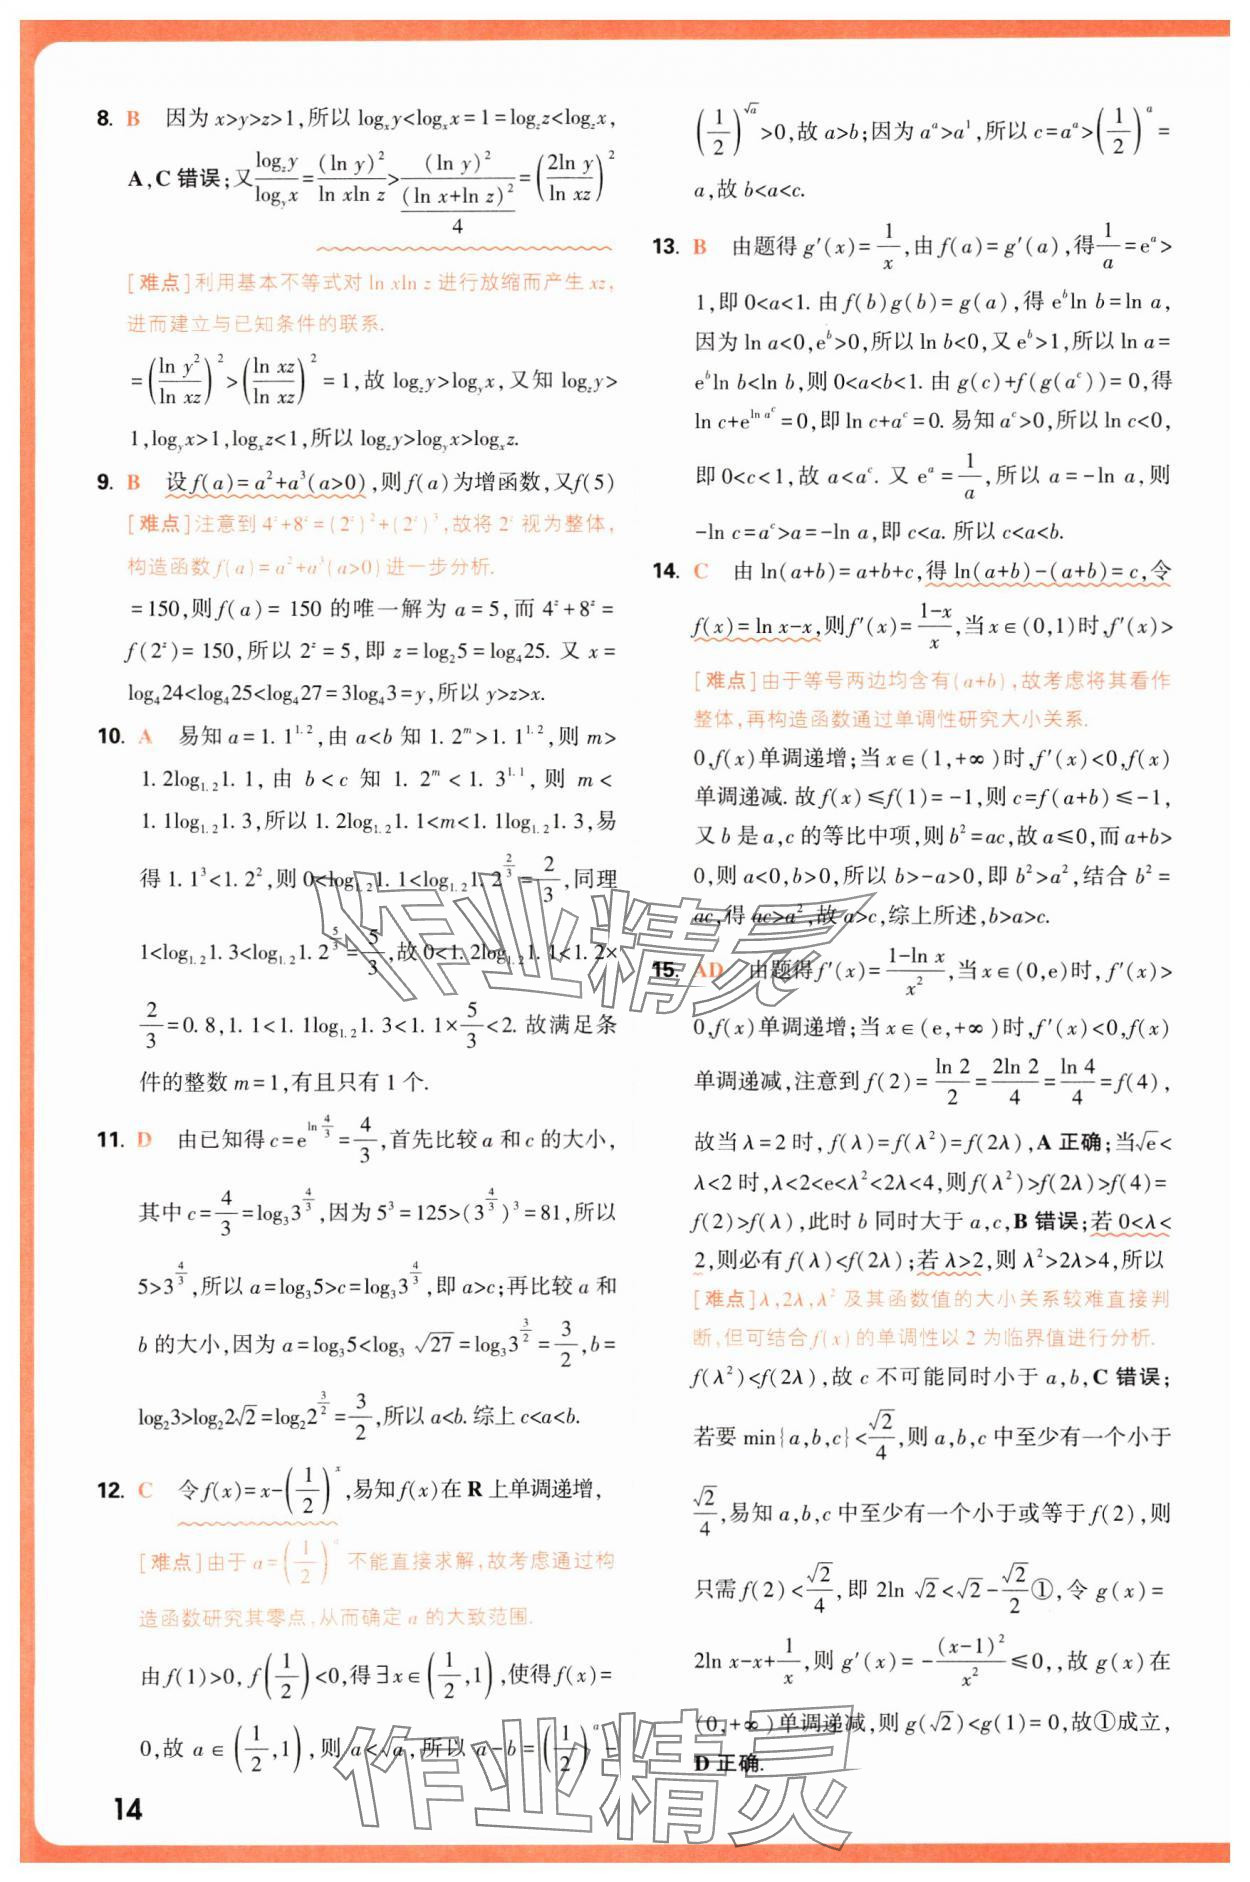 8. B 因为 x>y>z>1,所以 log_x y<log_x x=1=log_z z<log_z x,
A,C 错误;又 \frac{log_z y}{log_y x}=\frac{(ln y)^2}{ln xln z}>\frac{(ln y)^2}{\frac{(ln x+ln z)^2}{4}}=(\frac{2ln y}{ln xz})^2
[难点]利用基本不等式对 ln xln z 进行放缩而产生 xz,
进而建立与已知条件的联系.
=(\frac{ln y^2}{ln xz})^2>(\frac{ln xz}{ln xz})^2=1,故 log_z y>log_y x,又知 log_z y>
1,log_y x>1,log_x z<1,所以 log_z y>log_y x>log_x z.
9. B 设 f(a)=a^2+a^3(a>0),则 f(a)为增函数,又f(5)
[难点]注意到 4^z+8^z=(2^z)^2+(2^z)^3,故将 2^z 视为整体,
构造函数 f(a)=a^2+a^3(a>0)进一步分析.
=150,则 f(a)=150 的唯一解为 a=5,而 4^z+8^z=
f(2^z)=150,所以 2^z=5,即 z=log_2 5=log_4 25. 又 x=
log_4 24<log_4 25<log_4 27=3log_4 3=y,所以 y>z>x.
10. A 易知 a=1.1^{1.2},由 a<b 知 1.2^m>1.1^{1.2},则 m>
1.2log_{1.2}1.1,由 b<c 知 1.2^m<1.3^{1.1},则 m<
1.1log_{1.2}1.3,所以 1.2log_{1.2}1.1<m<1.1log_{1.2}1.3,易
得 1.1^3<1.2^2,则 0<log_{1.2}1.1<log_{1.2}1.2^{\frac{2}{3}}=\frac{2}{3},同理
1<log_{1.2}1.3<log_{1.2}1.2^{\frac{5}{3}}=\frac{5}{3},故 0<1.2log_{1.2}1.1<1.2×
\frac{2}{3}=0.8,1.1<1.1log_{1.2}1.3<1.1×\frac{5}{3}<2. 故满足条
件的整数 m=1,有且只有 1 个.
11. D 由已知得 c=e^{ln \frac{4}{3}}=\frac{4}{3},首先比较 a 和 c 的大小,
其中 c=\frac{4}{3}=log_3 3^{\frac{4}{3}},因为 5^3=125>(3^{\frac{4}{3}})^3=81,所以
5>3^{\frac{4}{3}},所以 a=log_3 5>c=log_3 3^{\frac{4}{3}},即 a>c;再比较 a 和
b 的大小,因为 a=log_3 5<log_3 √27=log_3 3^{\frac{3}{2}}=\frac{3}{2},b=
log_2 3>log_2 2√2=log_2 2^{\frac{3}{2}}=\frac{3}{2},所以 a<b. 综上 c<a<b.
12. C 令 f(x)=x-(\frac{1}{2})^x,易知 f(x)在 R 上单调递增,
[难点]由于 a=(\frac{1}{2})^a 不能直接求解,故考虑通过构
造函数研究其零点,从而确定 a 的大致范围.
由 f(1)>0,f(\frac{1}{2})<0,得∃x∈(\frac{1}{2},1),使得 f(x)=
0,故 a∈(\frac{1}{2},1),则 a<√a,所以 a-b=(\frac{1}{2})^a-
(\frac{1}{2})^{√a}>0,故 a>b;因为 a^a>a^1,所以 c=a^a>(\frac{1}{2})^a=
a,故 b<a<c.
13. B 由题得 g′(x)=\frac{1}{x},由 f(a)=g′(a),得\frac{1}{a}=e^a>
1,即 0<a<1. 由 f(b)g(b)=g(a),得 e^b ln b=ln a,
因为 ln a<0,e^b>0,所以 ln b<0,又 e^b>1,所以 ln a=
e^b ln b<ln b,则 0<a<b<1. 由 g(c)+f(g(a^c))=0,得
ln c+e^{ln a^c}=0,即 ln c+a^c=0. 易知 a^c>0,所以 ln c<0,
即 0<c<1,故 a<a^c. 又 e^a=\frac{1}{a},所以 a=-ln a,则
-ln c=a^c>a=-ln a,即 c<a. 所以 c<a<b.
14. C 由 ln(a+b)=a+b+c,得 ln(a+b)-(a+b)=c,令
f(x)=ln x-x,则 f′(x)=\frac{1-x}{x},当 x∈(0,1)时,f′(x)>
[难点]由于等号两边均含有(a+b),故考虑将其看作
整体,再构造函数通过单调性研究大小关系.
0,f(x)单调递增;当 x∈(1,+∞)时,f′(x)<0,f(x)
单调递减. 故 f(x)≤f(1)=-1,则 c=f(a+b)≤-1,
又 b 是 a,c 的等比中项,则 b^2=ac,故 a≤0,而 a+b>
0,则 a<0,b>0,所以 b>-a>0,即 b^2>a^2,结合 b^2=
ac,得 ac>a^2,故 a>c,综上所述,b>a>c.
15. AD 由题得 f′(x)=\frac{1-ln x}{x^2},当 x∈(0,e)时,f′(x)>
0,f(x)单调递增;当 x∈(e,+∞)时,f′(x)<0,f(x)
单调递减,注意到 f(2)=\frac{ln 2}{2}=\frac{2ln 2}{4}=\frac{ln 4}{4}=f(4),
故当 λ=2 时,f(λ)=f(λ^2)=f(2λ),A 正确;当√e<
λ<2 时,λ<2<e<λ^2<2λ<4,则 f(λ^2)>f(2λ)>f(4)=
f(2)>f(λ),此时 b 同时大于 a,c,B 错误;若 0<λ<
2,则必有 f(λ)<f(2λ);若 λ>2,则 λ^2>2λ>4,所以
[难点]λ,2λ,λ^2 及其函数值的大小关系较难直接判
断,但可结合 f(x)的单调性以 2 为临界值进行分析.
f(λ^2)<f(2λ),故 c 不可能同时小于 a,b,C 错误;
若要 min{a,b,c}<\frac{√2}{4},则 a,b,c 中至少有一个小于
\frac{√2}{4},易知 a,b,c 中至少有一个小于或等于 f(2),则
只需 f(2)<\frac{√2}{4},即 2ln √2<√2-\frac{√2}{2}①,令 g(x)=
2ln x-x+\frac{1}{x},则 g′(x)=-\frac{(x-1)^2}{x^2}≤0,,故 g(x)在
(0,+∞)单调递减,则 g(√2)<g(1)=0,故①成立,
D 正确.
14
作业精灵
作业精灵